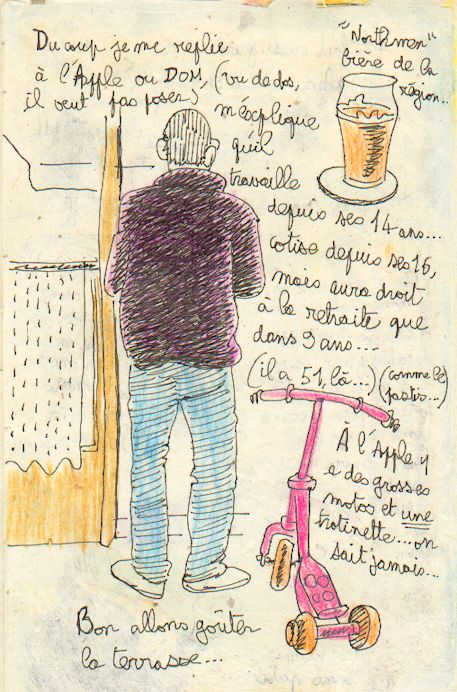 Du coup je me replie
à l'Apple où DOM, (vu de dos,
il veut pas poser)
m'explique
qu'il
travaille
depuis ses 14 ans...
cotise depuis ses 16,
mais aura droit
à la retraite que
dans 9 ans...
(il a 51, là...) (comme le
pastis...)
"Northmen"
bière de la
région...
À l'Apple y
a des grosses
motos et une
trotinette... on
sait jamais...
Bon allons goûter
la terrasse...